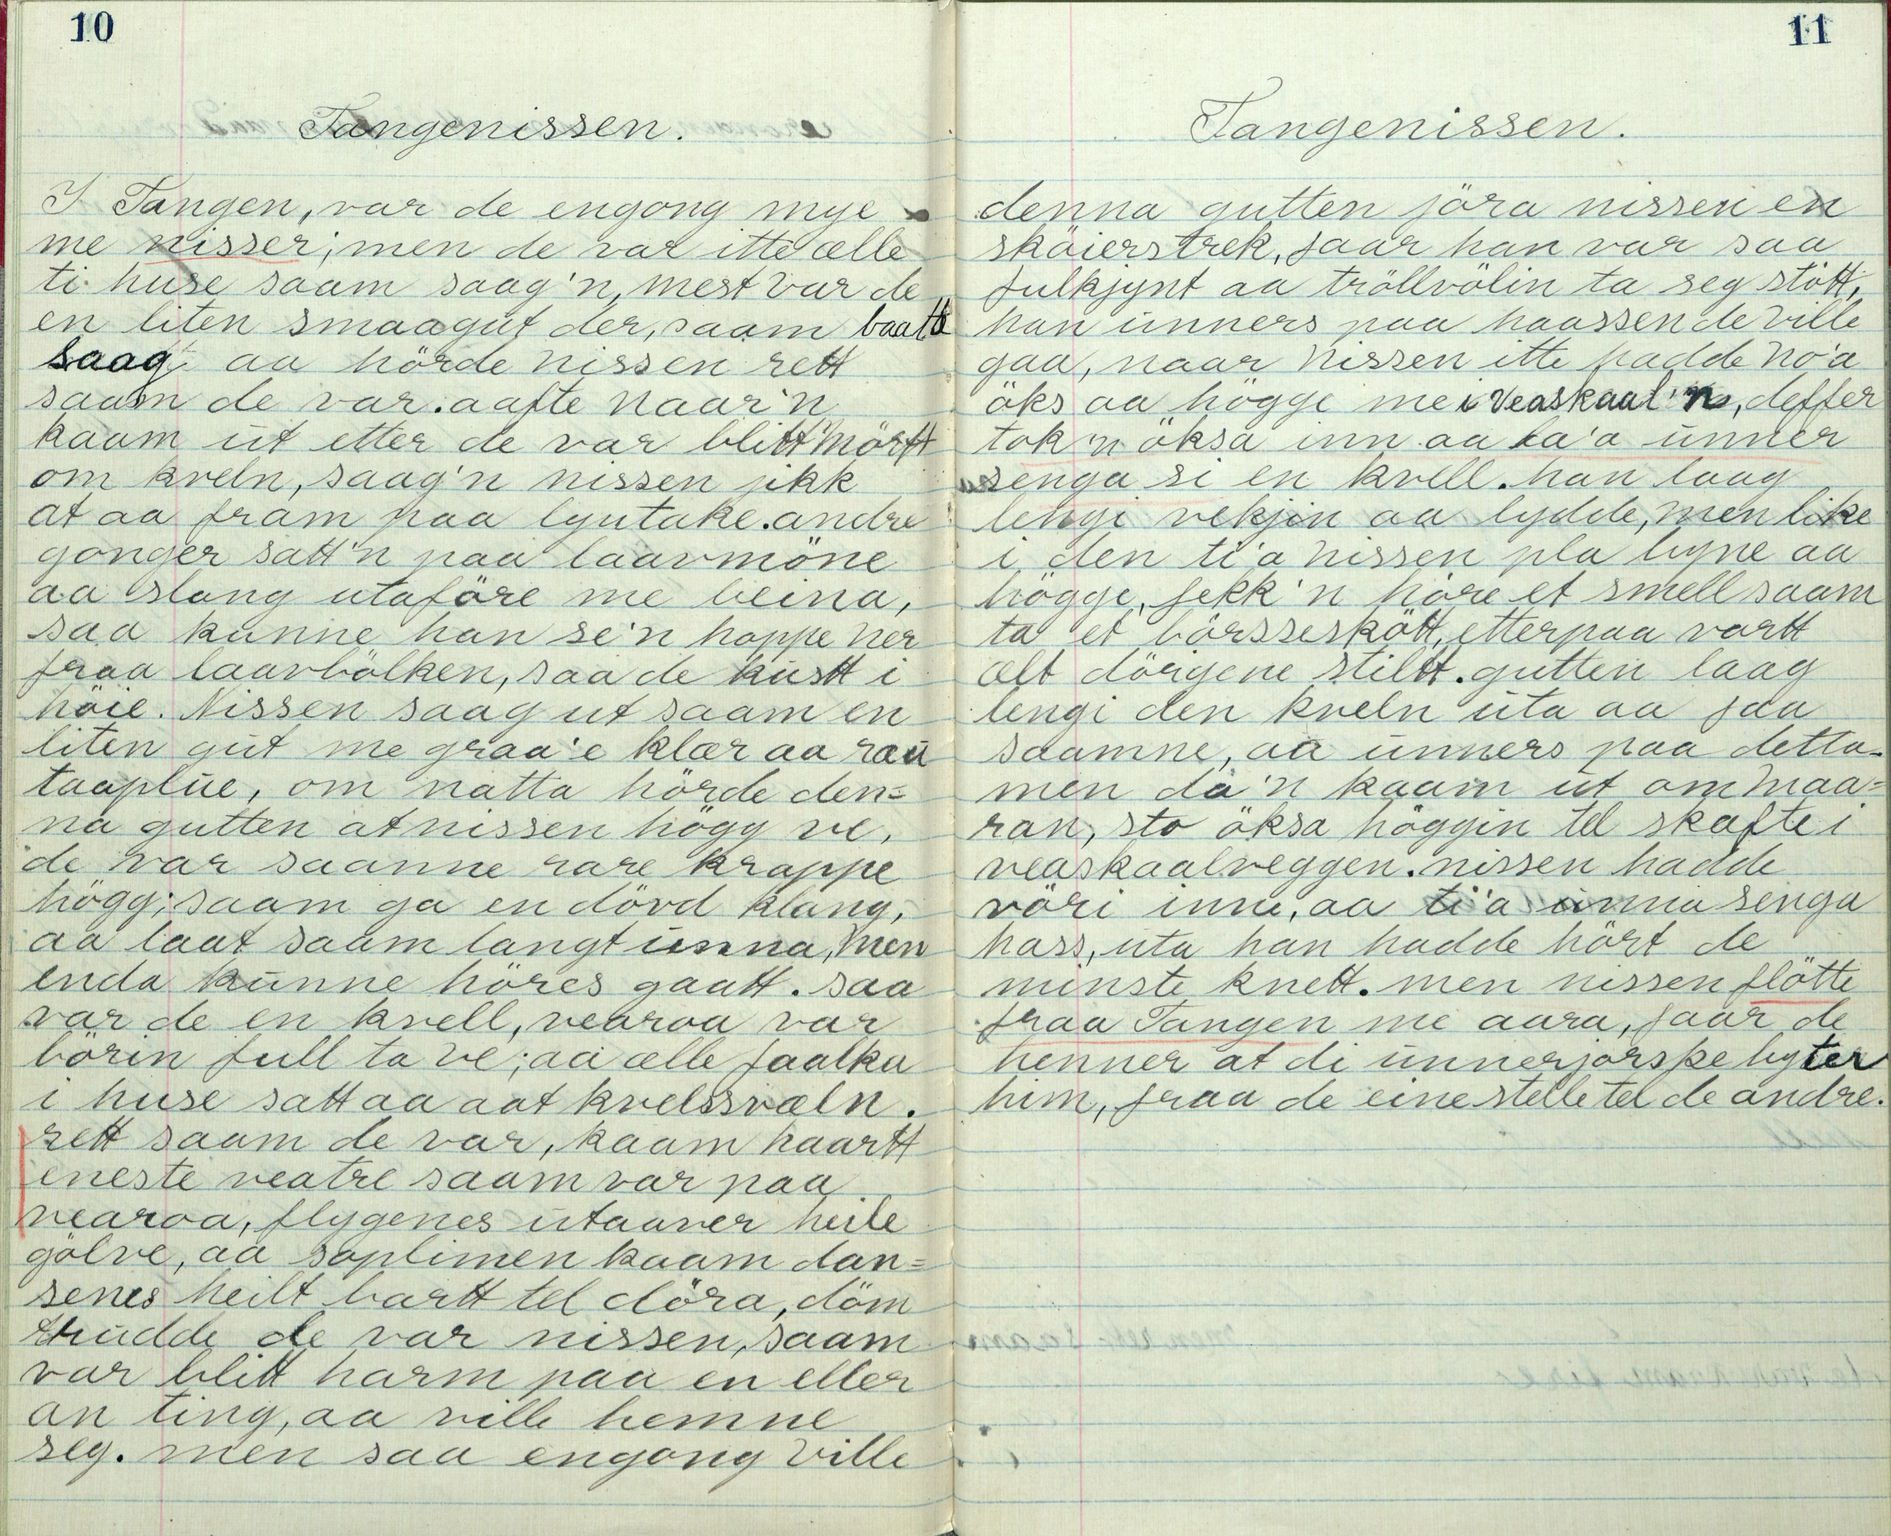 10
Tangenissen.
I Tangen, var de engong mye
me nisser; men de var itte ælle
ti huse saam saag'n, mest var de
en liten smaagut der, saam baatt
saag aa hörde nissen rett
saam de var. aafte naar'n
kaam ut etter de var blitt mörtt
om kveln, saag'n nissen jikk
at aa fram paa lyutake. andre
gonger satt'n paa laavmöne
aa slong utaföre me beina,
saa kunne han se'n hoppe ner
fraa laavbölken, saa de kustt i
höie. Nissen saag ut saam en
liten gut me graa'e klær aa rau
taaplue, om natta hörde den=
na gutten at nissen högg ve,
de var saanne rare krappe
högg; saam ga en dövd klang,
aa laat saam langt unna, men
enda kunne höres gaatt. saa
var de en kvell, vearoa var
börin full ta ve; aa ælle faalka
i huse satt aa aat kveldsvæln.
rett saam de var, kaam haartt
eneste veatre saam var paa
vearoa, flygenes utaaver heile
gölve, aa soplimen kaam dan=
senes heilt bartt tel döra, döm
trudde de var nissen, saam
var blitt harm paa en eller
an ting, aa ville hemne
seg. men saa engong ville
11
Tangenissen.
denna gutten jöra nissen en
sköierstrek, faar han var saa
fulkjynt aa tröllvölin ta seg stött,
han unners paa haassen de ville
gaa, naar nissen itte hadde no'a
öks aa högge me i veaskaal'n, deffer
tok'n öksa inn aa la'a unner
senga si en kvell. han laag
lengi vekjin aa lydde, men like
i den ti'a nissen pla byne aa
högge, fekk'n höre et smell saam
ta et börsseskött, etterpaa vartt
ælt dörgene stiltt. gutten laag
lengi den kveln uta aa faa
saamne, aa unners paa detta.
men da'n kaam ut om maa=
ran, sto öksa höggin tel skafte i
veaskaalveggen. nissen hadde
vöri inne, aa ti'a unna senga
hass, uta han hadde hört de
minste knett. men nissen flötte
fraa Tangen me aara, faar de
henner at di unnerjorske byter
him, fraa de eine stelle tel de andre.